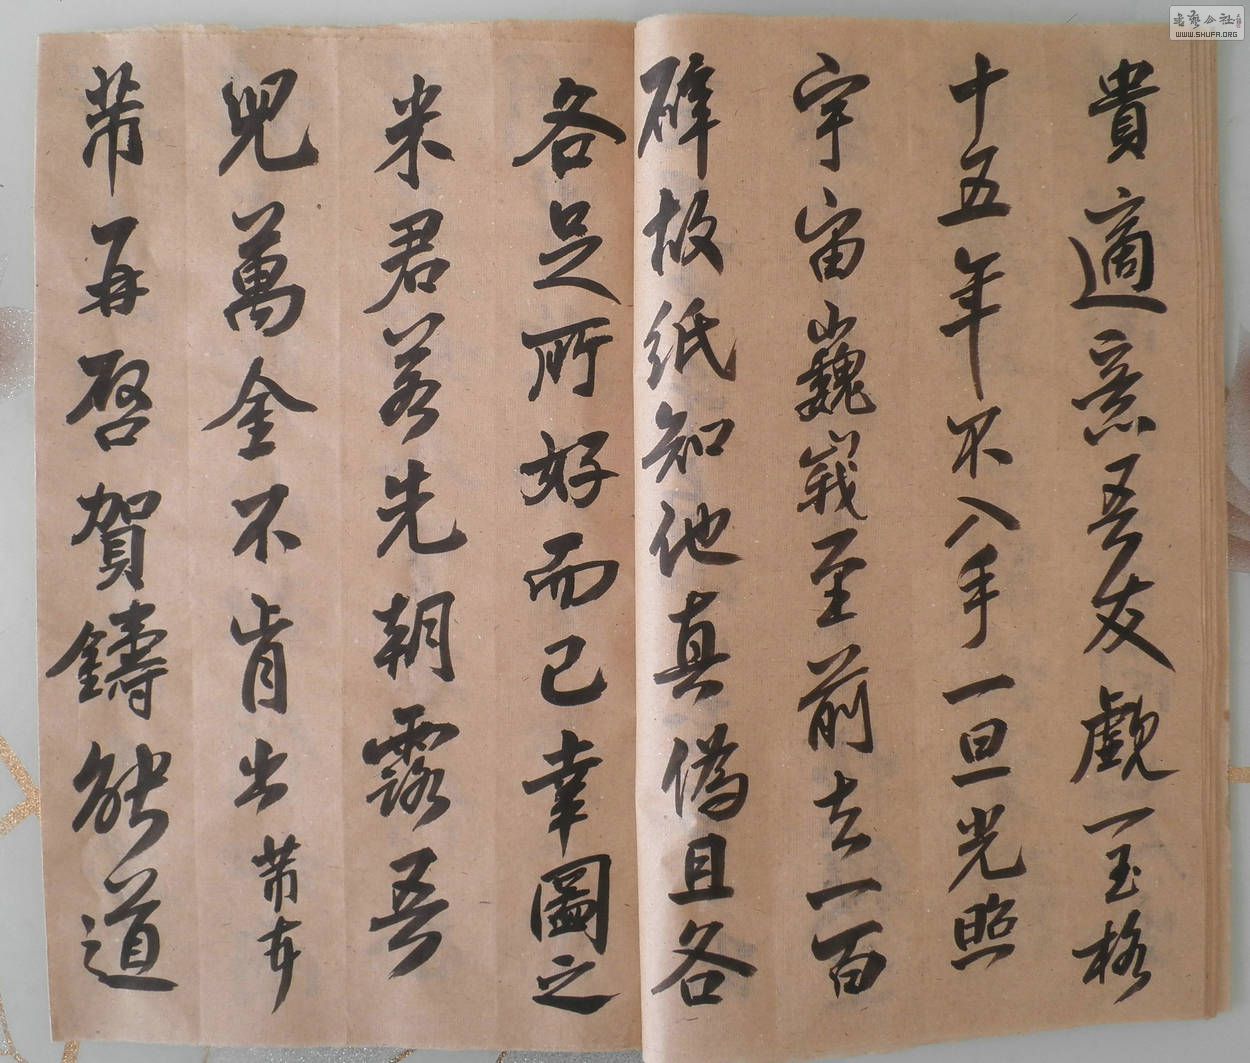 貴適意吾友覷一玉格
十五年不入手一旦光照
宇宙巍峩至前去一百
碎故紙知他真偽且各
各足所好而已幸圖之
米君若先朝露吾
兒萬金不肯出芾
芾再啓賀鑄能道
書藝公社
WWW.SHUFA.ORG